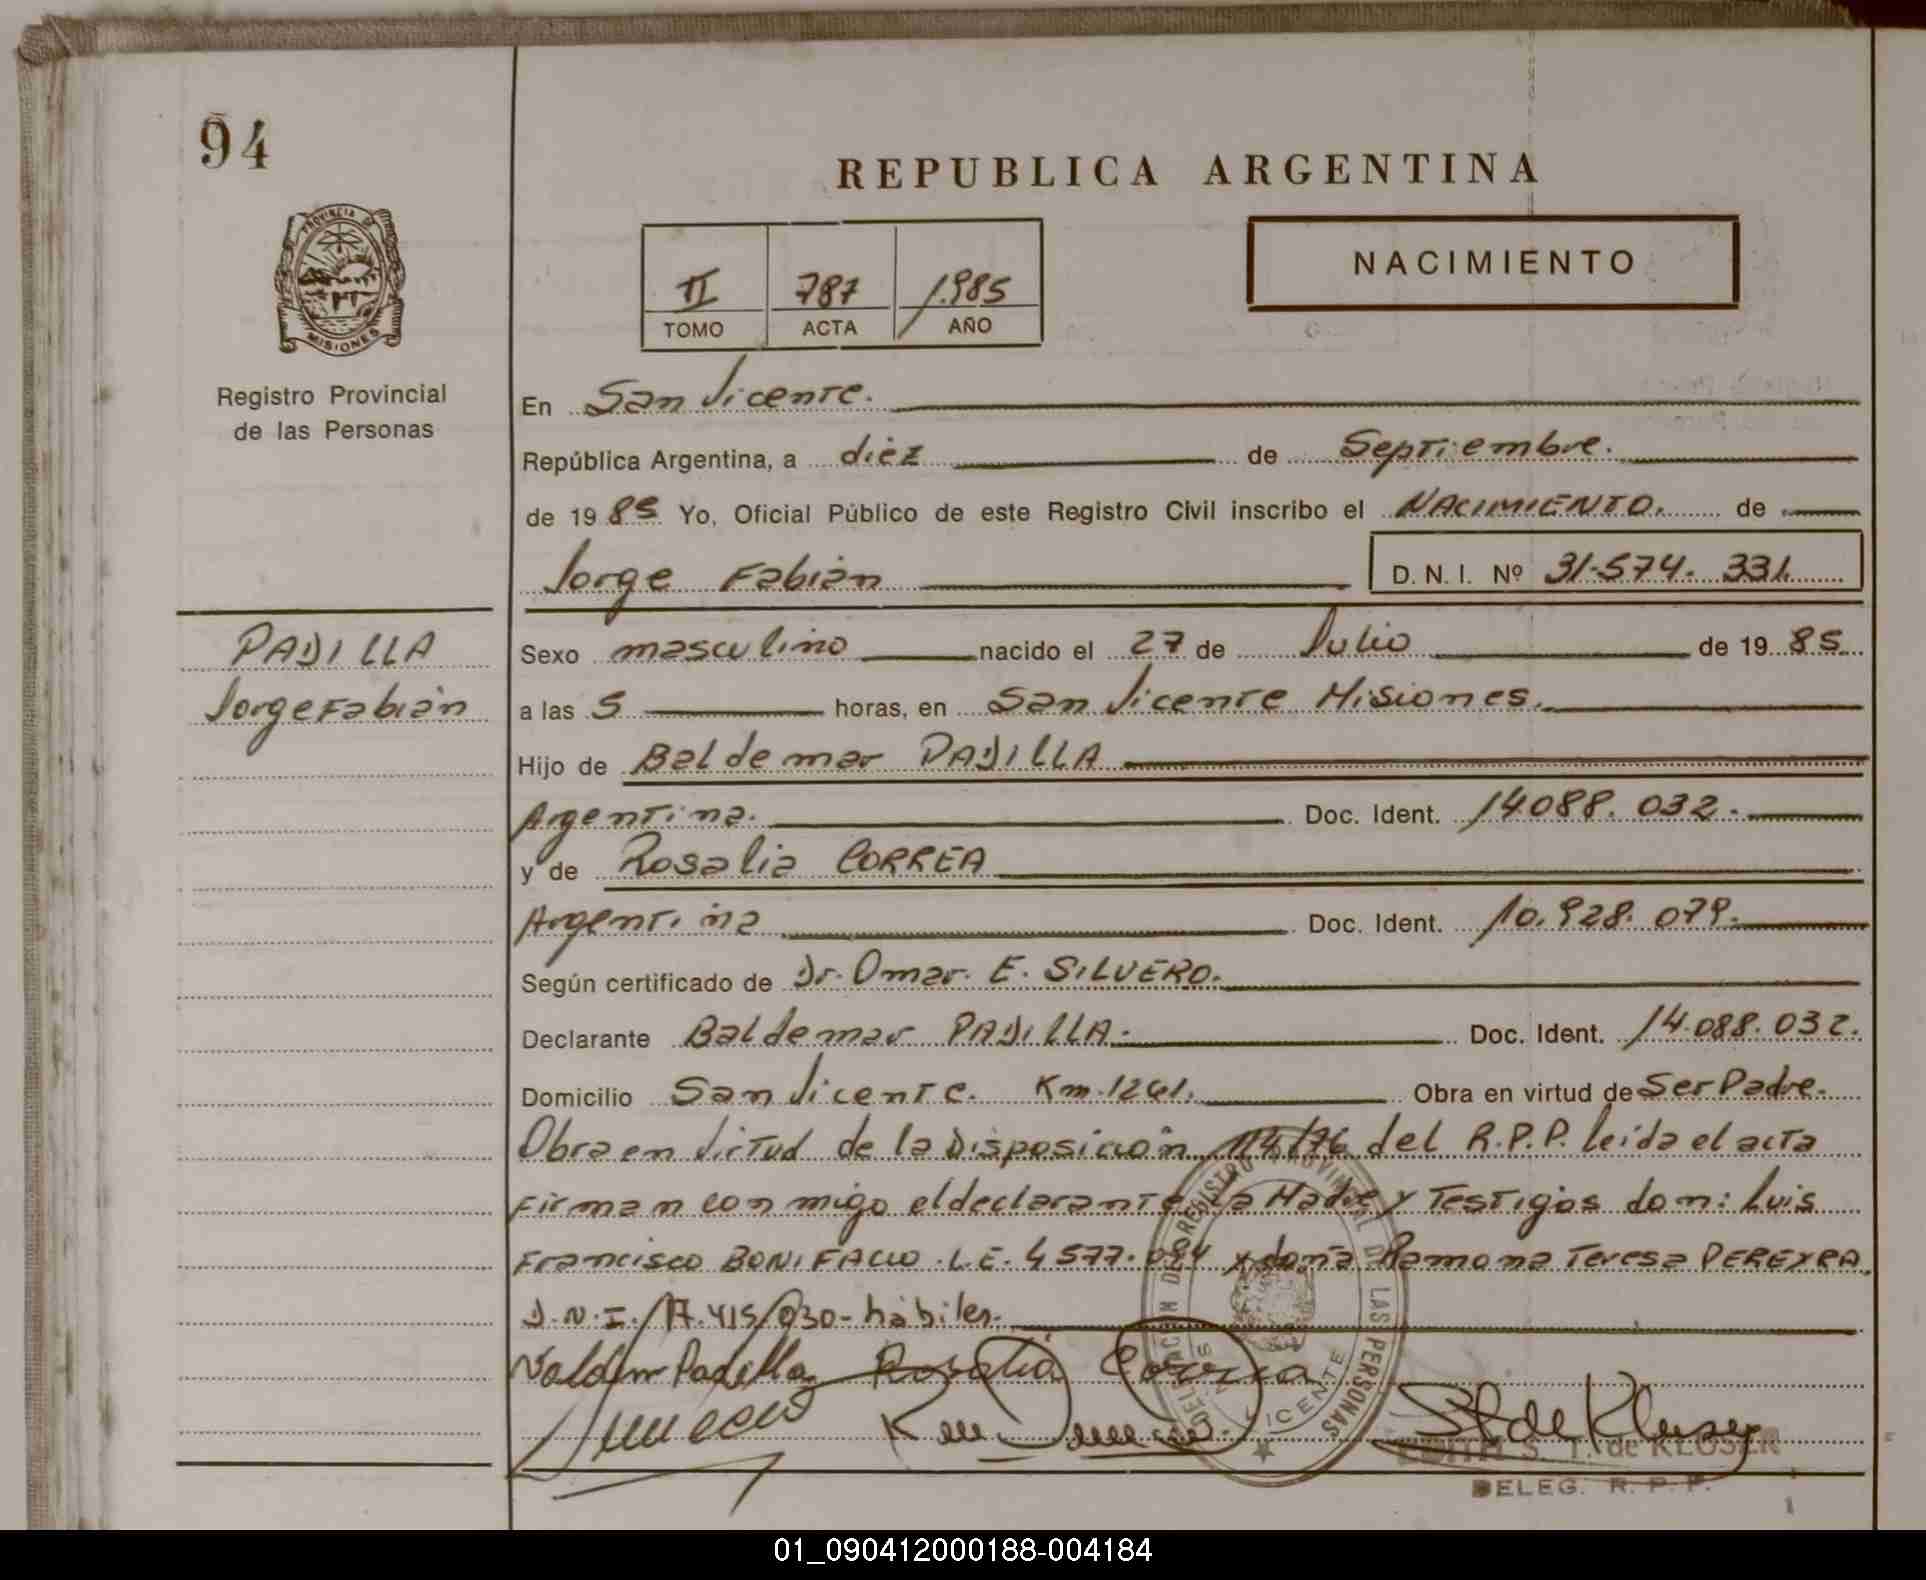 94
REPUBLICA ARGENTINA
PROVINCIA DE
MISIONES
II 787 1.985
TOMO ACTA AÑO
NACIMIENTO
Registro Provincial
de las Personas
En San Vicente.
República Argentina, a diez de Septiembre.
de 1985 Yo, Oficial Público de este Registro Civil inscribo el NACIMIENTO. de
Jorge Fabián D. N. I. Nº 31.574.331.
PADILLA
Jorge Fabián
Sexo masculino nacido el 27 de Julio de 1985
a las 5 horas, en San Vicente Misiones.
Hijo de Baldemar PADILLA
Argentina. Doc. Ident. 14.088.032.
y de Rosalia CORREA
Argentina Doc. Ident. 10.928.079.
Según certificado de Dr. Omar. E. SILVERO.
Declarante Baldemar PADILLA. Doc. Ident. 14.088.032.
Domicilio San Vicente. Km. 1261. Obra en virtud de Ser Padre.
Obra en Virtud de la Disposición 114/76 del R.P.P. leída el acta
Firman conmigo el declarante La Madre y Testigos don: Luis
Francisco BONIFACIO. L.E. 4.577.084 y doña Ramona Teresa PEREYRA.
D.N.I. 17.415.030- hábiles.
Padilla Rosalia Correa
DELEGACION DEL REGISTRO PROVINCIAL DE LAS PERSONAS
VICENTE
S. T. de Kluser
EDITH S. T. de KLUSER
DELEG. R. P. P.
01_090412000188-004184